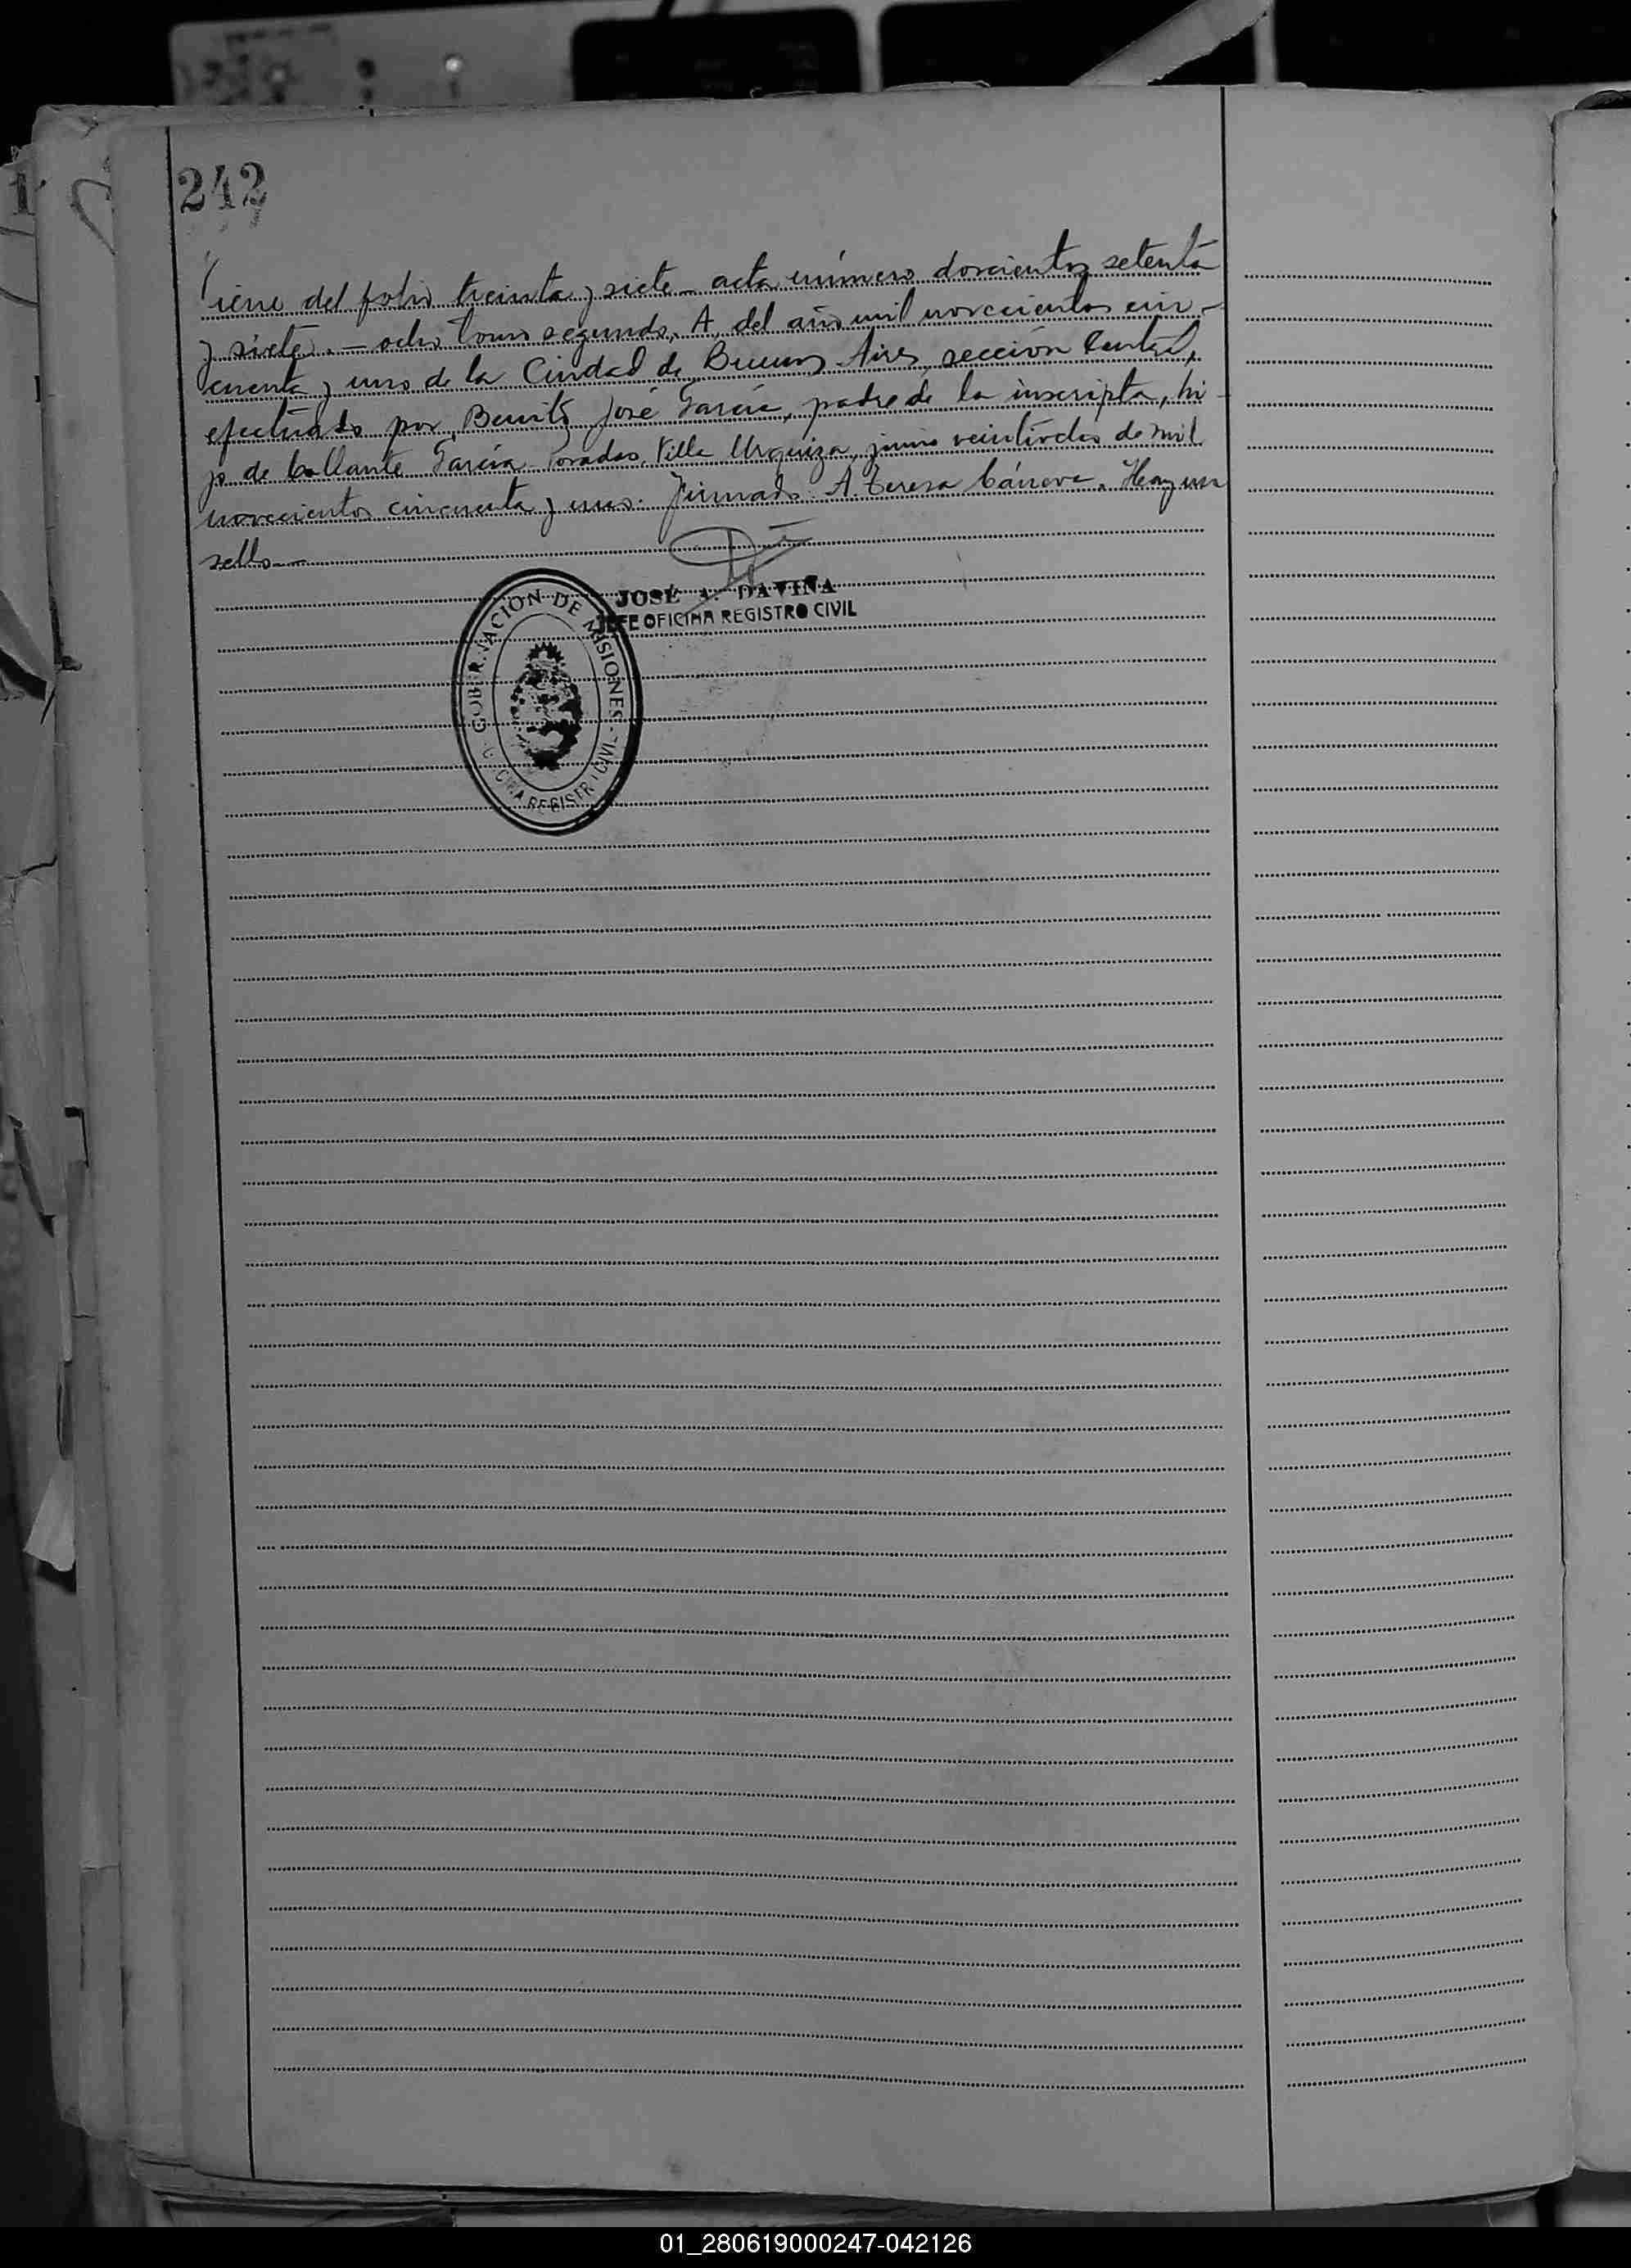 242
Viene del folio treinta y siete - acta número doscientos setenta
y siete. - ocho tomo segundo, A del año mil novecientos cin-
cuenta y uno de la Ciudad de Buenos Aires, sección Central,
efectuado por Benito José García, padre de la inscripta, hi-
jo de García. Posadas, Villa Urquiza, junio veintidos de mil
novecientos cincuenta y uno. Firmado: A. Teresa Cánova. Hay un
sello—
JOSÉ A. DAVIÑA
JEFE OFICINA REGISTRO CIVIL
GOBERNACION DE MISIONES
OFICINA REGISTRO CIVIL
01_280619000247-042126